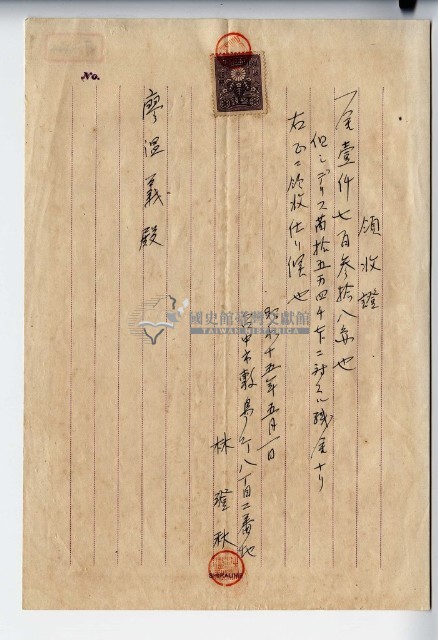 領收證
一金壹仟七百參拾八円也
但シデリス苗拾五万四千本ニ対スル残金ナリ
右正ニ領收仕リ候也
昭和十五年五月一日
台中市敷島町八丁目二番地
林澄秋
廖温義殿
No.
國史館臺灣文獻館
TAIWAN HISTORICA